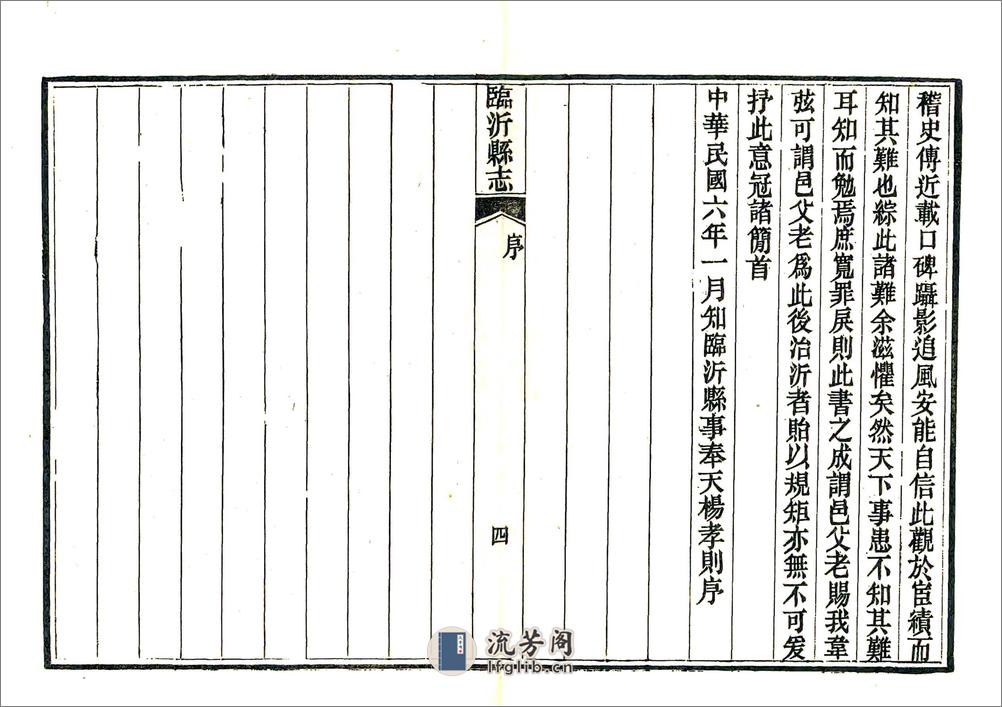 稽史傳近載口碑躡影追風安能自信此觀於宦績而
知其難也綜此諸難余滋懼矣然天下事患不知其難
耳知而勉焉庶寬罪戾則此書之成謂邑父老賜我韋
弦可謂邑父老爲此後治沂者貽以規矩亦無不可爰
抒此意冠諸簡首
中華民國六年一月知臨沂縣事奉天楊孝則序
臨沂縣志
序
四
流芳阁
lfglib.cn